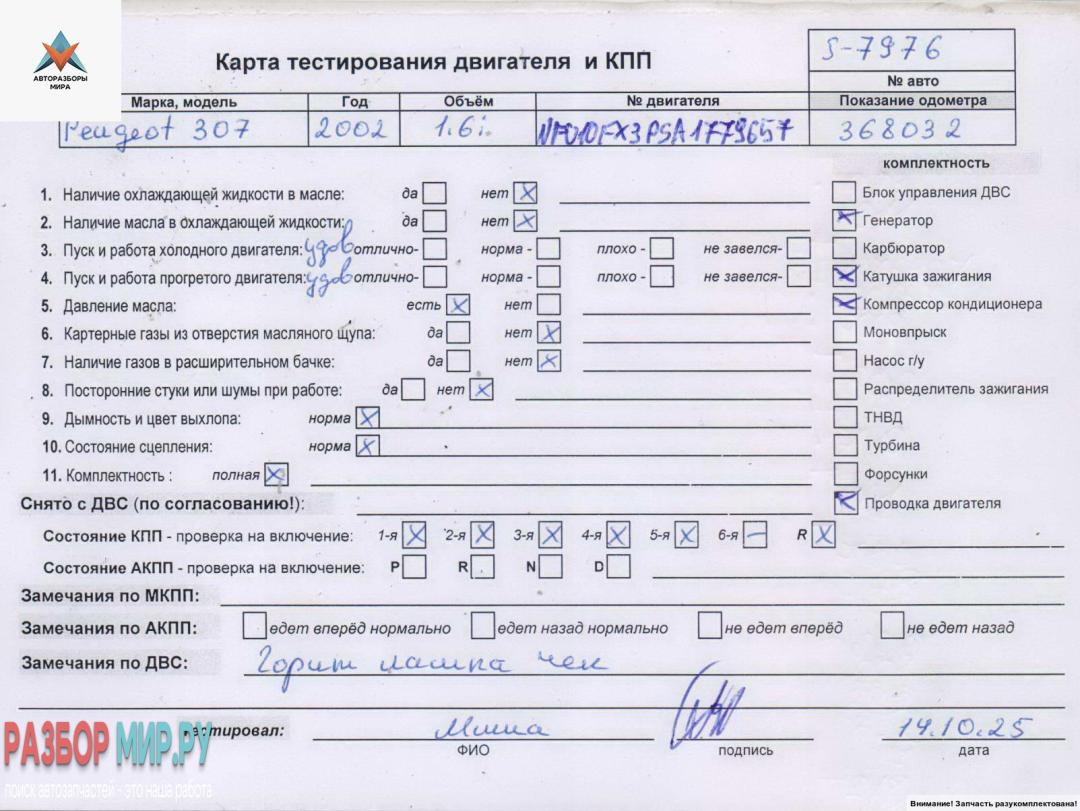 АВТОРАЗБОРЫ
МИРА
Карта тестирования двигателя и КПП
S-7976
№ авто
Марка, модель Год Объём № двигателя Показание одометра
Peugeot 307 2002 1.6i NFU10FX3PSA1779657 368032
комплектность
1. Наличие охлаждающей жидкости в масле: да нет X
Блок управления ДВС
2. Наличие масла в охлаждающей жидкости: да нет X
Генератор
3. Пуск и работа холодного двигателя: удов отлично- норма - плохо - не завелся-
Карбюратор
4. Пуск и работа прогретого двигателя: удов отлично- норма - плохо - не завелся-
Катушка зажигания
5. Давление масла: есть X нет
Компрессор кондиционера
6. Картерные газы из отверстия масляного щупа: да нет X
Моновпрыск
7. Наличие газов в расширительном бачке: да нет X
Насос г/у
8. Посторонние стуки или шумы при работе: да нет X
Распределитель зажигания
9. Дымность и цвет выхлопа: норма X
ТНВД
10. Состояние сцепления: норма X
Турбина
11. Комплектность : полная X
Форсунки
Снято с ДВС (по согласованию!):
Проводка двигателя
Состояние КПП - проверка на включение: 1-я X 2-я X 3-я X 4-я X 5-я X 6-я – R X
Состояние АКПП - проверка на включение: P R N D
Замечания по МКПП:
Замечания по АКПП: едет вперёд нормально едет назад нормально не едет вперёд не едет назад
Замечания по ДВС: Горит лампа чек
тестировал: Миша 14.10.25
ФИО подпись дата
РАЗБОР МИР.РУ
поиск автозапчастей - это наша работа
Внимание! Запчасть разукомплектована!